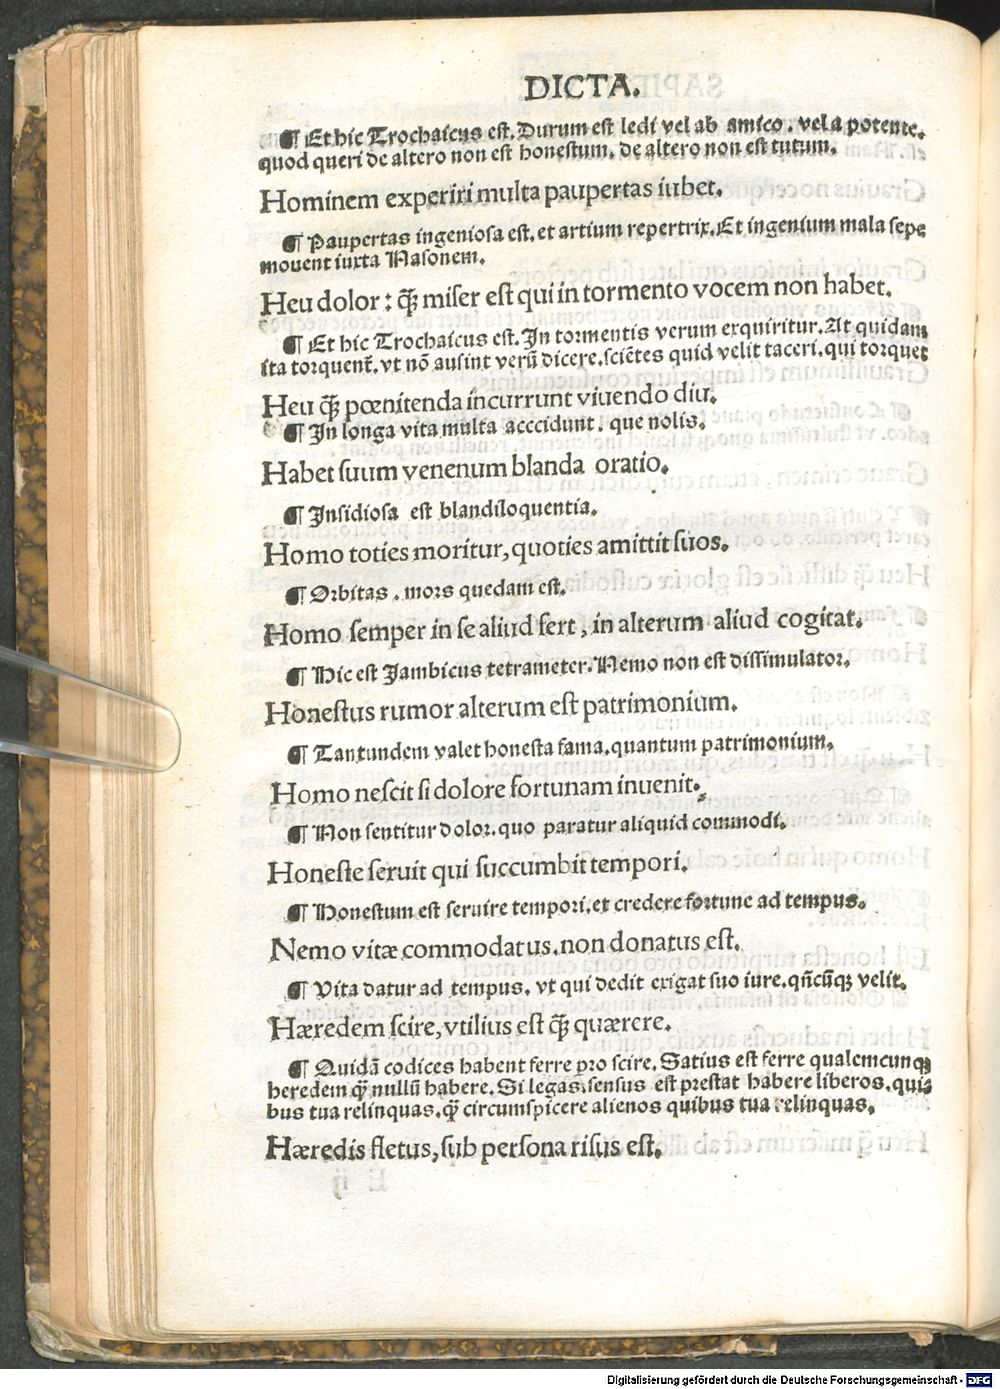 DICTA.
¶ Et hic Trochaicus est. Durum est ledi vel ab amico. vel a potente.
quod queri de altero non est honestum. de altero non est tutum.
Hominem experiri multa paupertas iubet.
¶ Paupertas ingeniosa est. et artium repertrix. Et ingenium mala sepe
mouent iuxta Nasonem.
Heu dolor: q̃ȝ miser est qui in tormento vocem non habet.
¶ Et hic Trochaicus est. In tormentis verum exquiritur. At quidam
ita torquent̃. vt nõ ausint verũ dicere. sciẽtes quid velit taceri. qui torquet
Heu q̃ȝ pœnitenda incurrunt viuendo diu.
¶ In longa vita multa acccidunt. que nolis.
Habet suum venenum blanda oratio.
¶ Insidiosa est blandiloquentia.
Homo toties moritur, quoties amittit suos.
¶ Orbitas. mors quedam est.
Homo semper in se aliud fert, in alterum aliud cogitat.
¶ Hic est Jambicus tetrameter. Nemo non est dissimulator.
Honestus rumor alterum est patrimonium.
¶ Tantundem valet honesta fama. quantum patrimonium.
Homo nescit si dolore fortunam inuenit.
¶ Non sentitur dolor. quo paratur aliquid commodi.
Honeste seruit qui succumbit tempori.
¶ Honestum est seruire tempori. et credere fortune ad tempus.
Nemo vitæ commodatus. non donatus est.
¶ Vita datur ad tempus. vt qui dedit exigat suo iure. qñcũqȝ velit.
Hæredem scire, vtilius est q̃ȝ quærere.
¶ Quidã codices habent ferre pro scire. Satius est ferre qualemcunqȝ
heredem q̃ȝ nullũ habere. Si legas. sensus est prestat habere liberos. qui⸗
bus tua relinquas. q̃ȝ circumspicere alienos quibus tua relinquas.
Hæredis fletus, sub persona risus est.
Digitalisierung gefördert durch die Deutsche Forschungsgemeinschaft - DFG